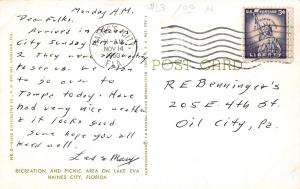 Monday A.M.
Dear Folks.
Arrived in Haines
City Sunday P.M. at
2 They were happy
to see us. We plan
to go over to
Tampa today. Have
had very nice weather
& it looks good
some hope you all
keep well.
Les & Mary
RECREATION AND PICNIC AREA ON LAKE EVA
HAINES CITY, FLORIDA
NOV 14
FLA.
POST CARD
U.S. POSTAGE
3¢
LIBERTY
R E Benninger's
205 E 4th St.
Oil City, Pa.